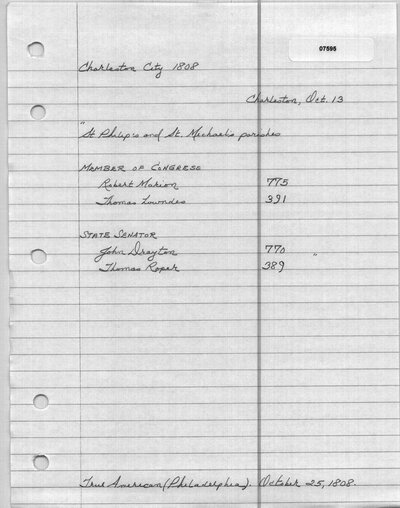 07595
Charleston City 1808
Charleston, Oct. 13
"St Philip's and St. Michael's parishes
MEMBER OF CONGRESS
Robert Marion 775
Thomas Lowndes 391
STATE SENATOR
John Drayton 770 "
Thomas Roper 389
True American (Philadelphia). October 25, 1808.